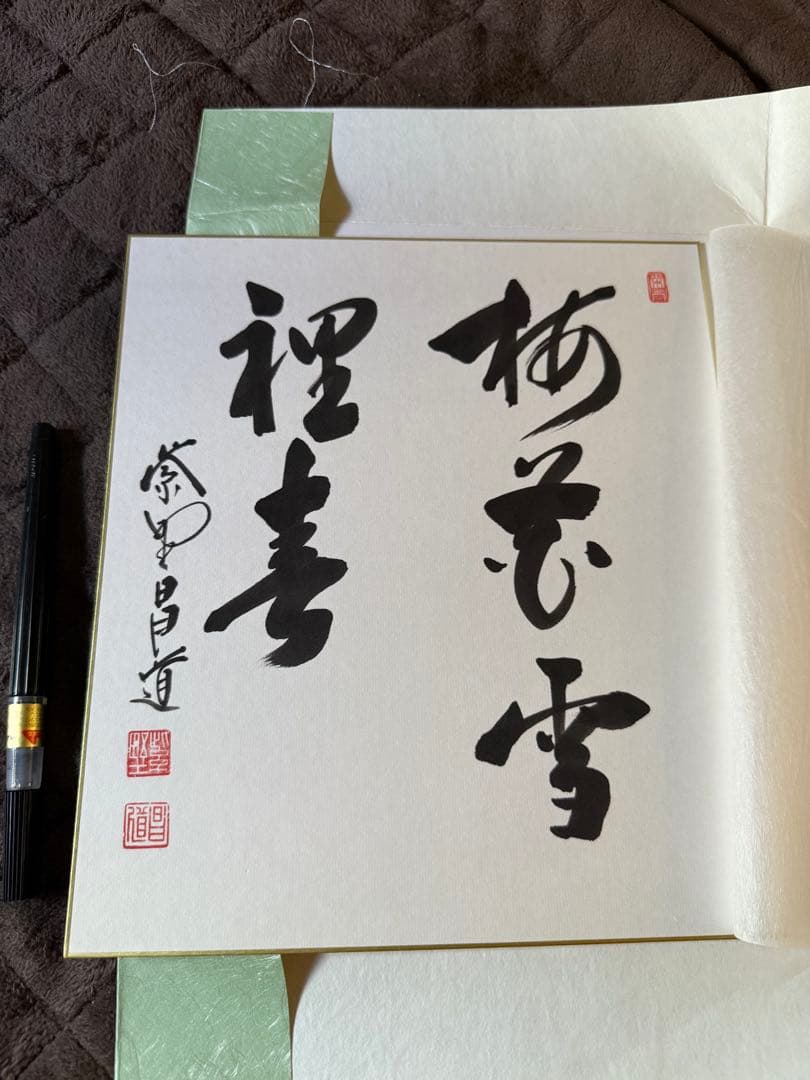 梅花雪
裡春
紫野昌道
昌道